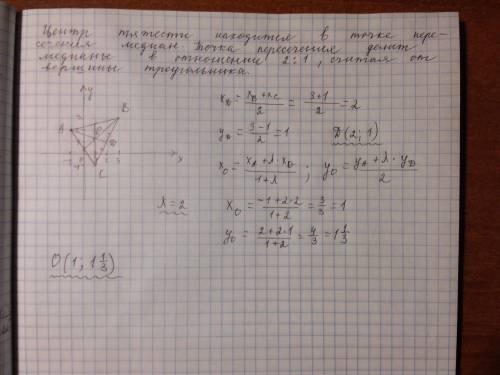 Центр тяжести находится в точке пере-
сечения медиан. Точка пересечения делит
медианы в отношение 2:1, считая от
вершины треугольника.
y
A B
D
O
C
x
x_D = (x_B + x_C)/2 = (3+1)/2 = 2
y_D = (3-1)/2 = 1 D(2; 1)
x_O = (x_A + λ·x_D)/(1+λ) ; y_O = (y_A + λ·y_D)/2
λ=2 x_O = (-1+2·2)/(1+2) = 3/3 = 1
y_O = (2+2·1)/(1+2) = 4/3 = 1 1/3
O(1; 1 1/3)